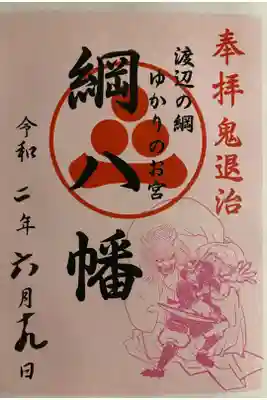 奉拝鬼退治
渡辺の綱
ゆかりのお宮
綱八幡
令和二年六月十九日